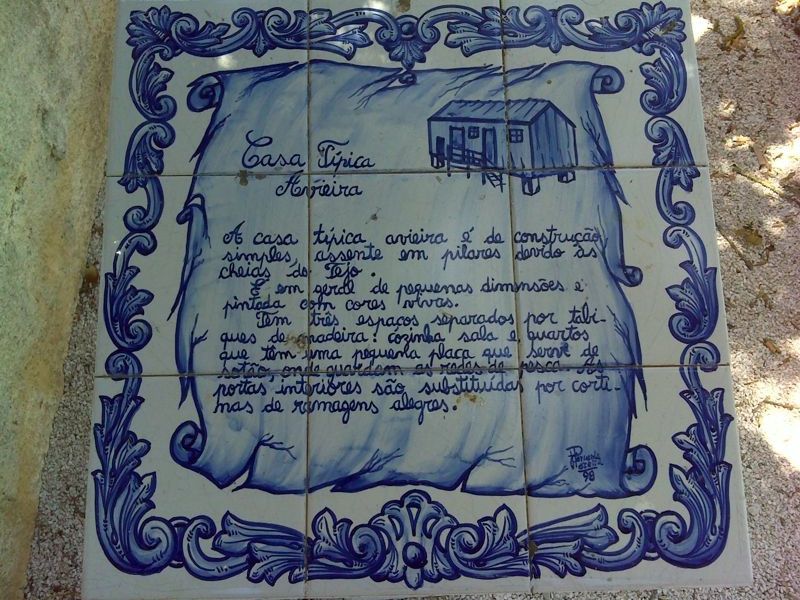 Casa Típica
Avieira
A casa típica avieira é de construção
simples, assente em pilares devido às
cheias do Tejo.
É em geral de pequenas dimensões e
pintada com cores vivas.
Tem três espaços separados por tabi-
ques de madeira: cozinha sala e quartos
que têm uma pequena placa que serve de
sotão, onde guardem as redes de pesca. As
portas interiores são substituídas por corti-
nas de ramagens alegres.
98